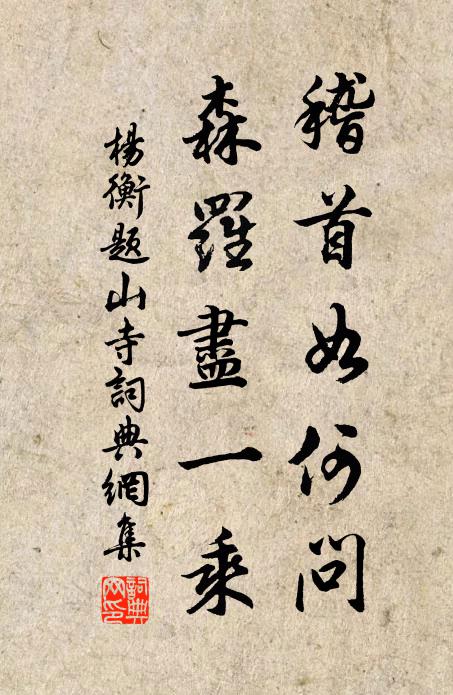 稽首如何問
森羅盡一乘
楊衡題山寺詞典網集
詞典網印